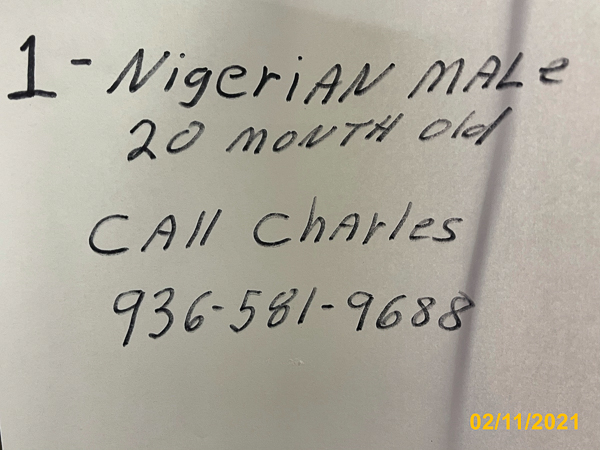 1 - NigeriAN MALe
20 MONTH Old
CAll ChArles
936-581-9688
02/11/2021